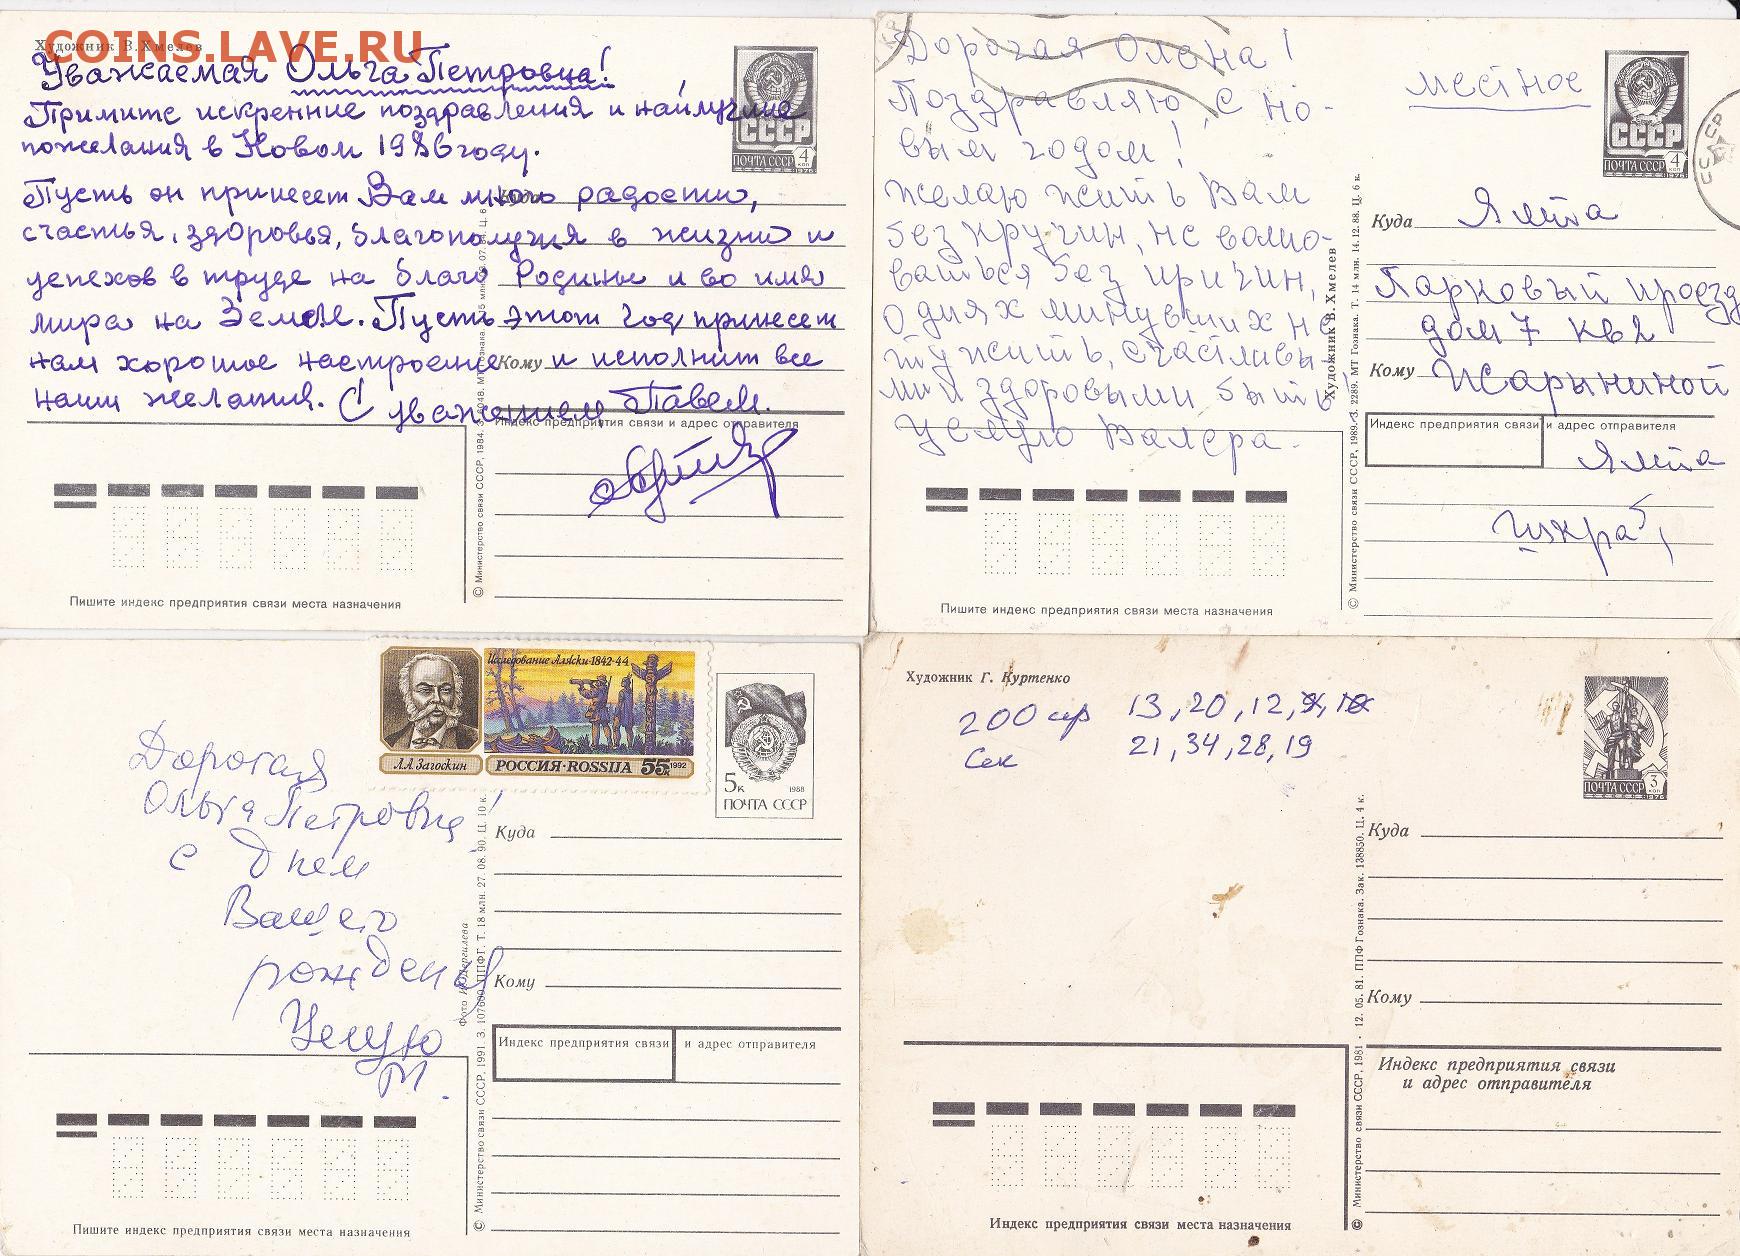 COINS.LAVE.RU
Художник В. Хмелев
Уважаемая Ольга Петровна!
Примите искренние поздравления и найлучшие
пожелания в Новом 1986 году.
Пусть он принесет Вам много радости,
счастья, здоровья, благополучия в жизни и
успехов в труде на благо Родины и во имя
мира на Земле. Пусть этот год принесет
нам хорошое настроение и исполнит все
наши желания. С уважением Павел.
СССР
ПОЧТА СССР 4 коп
1976
Кому
Индекс предприятия связи и адрес отправителя
Пишите индекс предприятия связи места назначения
© Министерство связи СССР, 1984.
Дорогая Олена!
Поздравляю с но-
вым годом!
Желаю жить Вам
без кручин, не волно-
ваться без причин,
О днях минувших не
тужить, счастливы
ми и здоровыми быть
Целую Валера.
местное
СССР
ПОЧТА СССР 4 коп
1976
Куда Ялта
Парковый проезд
дом 7 кв 2
Кому Жарыниной
Индекс предприятия связи и адрес отправителя
Ялта
Пишите индекс предприятия связи места назначения
Художник В. Хмелев
© Министерство связи СССР, 1989. З. 2289. МТ Гознака. Т. 14 млн. 14.12.88. Ц. 6 к.
Исследование Аляски·1842-44
Л.А.Загоскин
РОССИЯ·ROSSIJA 55к 1992
5к 1988
ПОЧТА СССР
Дорогая
Ольга Петровна!
с Днем
Вашего
рождения
Целую
Куда
Кому
Индекс предприятия связи и адрес отправителя
Пишите индекс предприятия связи места назначения
© Министерство связи СССР, 1991. З. 107609. ППФГ. Т. 18 млн. 27. 08. 90. Ц. 10 к.
Художник Г. Куртенко
200 гр 13, 20, 12,
Сек 21, 34, 28, 19
ПОЧТА СССР 3 коп
1976
Куда
Кому
Индекс предприятия связи
и адрес отправителя
Индекс предприятия связи места назначения
© Министерство связи СССР, 1981 · 12. 05. 81. ППФ Гознака. Зак. 138850. Ц. 4 к.